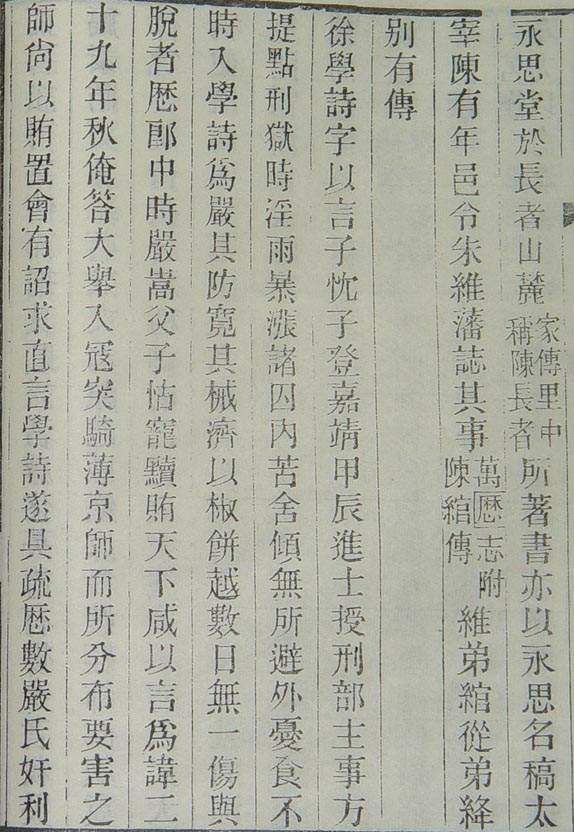 永思堂於長者山麓家傳里中稱陳長者所著書亦以永思名稿太
宰陳有年邑令朱維藩誌其事萬曆志附陳綰傳維弟綰從弟絳
别有傳
徐學詩字以言子忱子登嘉靖甲辰進士授刑部主事方
提點刑獄時淫雨暴漲諸囚内苦舍傾無所避外憂食不
時入學詩爲嚴其防寬其械濟以椒餅越數日無一傷與
脫者歷郎中時嚴嵩父子怙寵黷賄天下咸以言爲諱二
十九年秋俺答大舉入寇突騎薄京師而所分布要害之
師尙以賄置會有詔求直言學詩遂具疏歷數嚴氏奸利